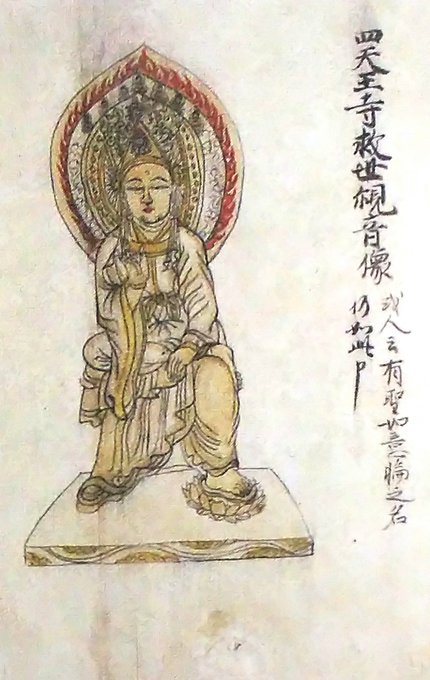 四天王寺救世観音像
或人云有聖如意輪之名
仍如此